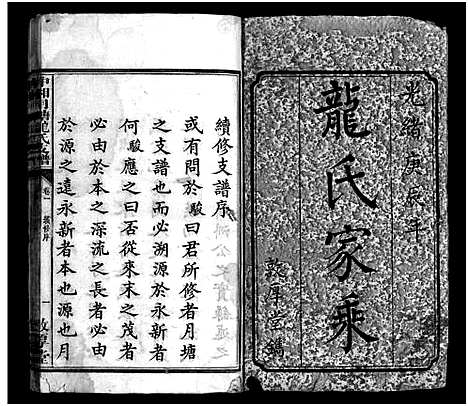 光緒庚辰年
龍氏家乘
敦厚堂鐫
續修支譜序
或有問於駿曰君所修者月塘
之支譜也而必溯源於永新者
何駿應之曰否從來末之茂者
必由於本之深流之長者必由
於源之遠永新者本也源也月
中湘月塘龍氏支譜
卷一
續修序
一
敦厚堂